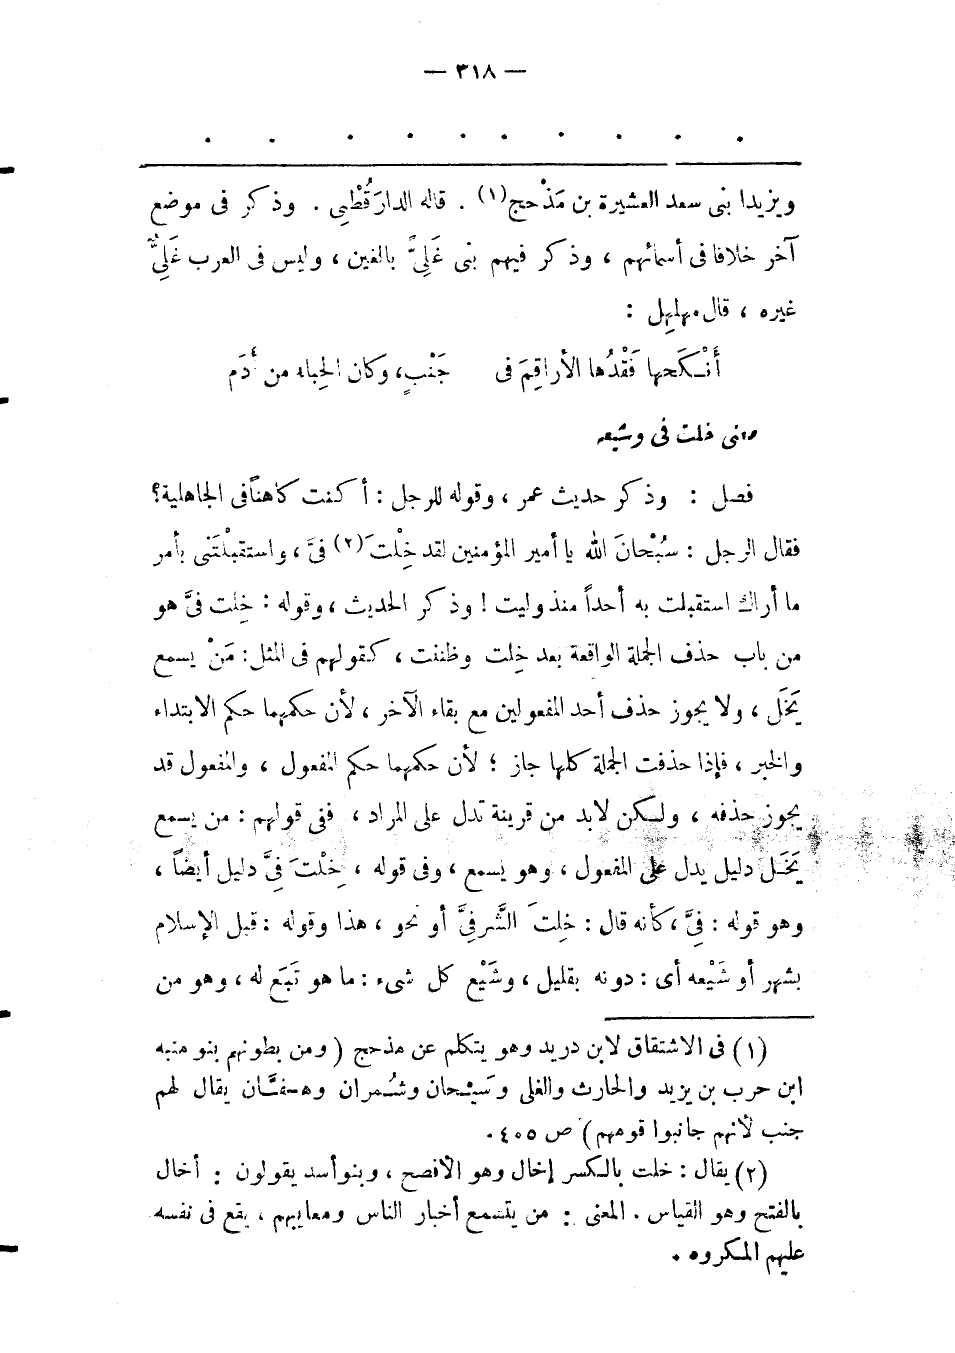 — ٣١٨ —
. . . . . . . . . .
ويزيدا بنى سعد العشيرة بن مَذْحج(١) . قاله الدارَقُطْنِى . وذكر فى موضع
آخر خلافا فى أسمائهم ، وذكر فيهم بنى غَلِىًّ بالغين ، وليس فى العرب غَلِىٌّ
غيره ، قال مهلهِل :
أَنْكَحها فَقْدُها الأراقِمَ فى جَنْبٍ، وكان الحِباء من أَدَم
معنى خلت فى وشيعه
فصل : وذكر حديث عمر ، وقوله للرجل : أكنت كاهناً فى الجاهلية؟
فقال الرجل : سُبْحانَ الله يا أمير المؤمنين لقد خِلْتَ(٢) فىَّ ، واستقبلْتَنى بأمر
ما أراك استقبلت به أحداً منذ وليت ! وذكر الحديث ، وقوله : خِلت فىَّ هو
من باب حذف الجملة الواقعة بعد خِلت وظننت ، كقولهم فى المثل : مَنْ يسمع
يَخَل ، ولا يجوز حذف أحد المفعولين مع بقاء الآخر ، لأن حكمهما حكم الابتداء
والخبر ، فإذا حذفت الجملة كلها جاز ؛ لأن حكمهما حكم المفعول ، والمفعول قد
يجوز حذفه ، ولكن لابد من قرينة تدل على المراد ، ففى قولهم : من يسمع
يَخَل دليل يدل على المفعول ، وهو يسمع ، وفى قوله ، خِلْتَ فِىَّ دليل أيضاً ،
وهو قوله : فىَّ ، كأنه قال : خِلتَ الشَّر فِىَّ أو نحو ، هذا وقوله : قبل الإسلام
بشهر أو شَيْعه أى : دونه بقليل ، وشَيْع كل شىء : ما هو تَبَع له ، وهو من
(١) فى الاشتقاق لابن دريد وهو يتكلم عن مذحج ( ومن بطونهم بنو منبه
ابن حرب بن يزيد والحارث والغلى وسَيْحان وشُمران وهفَّان يقال لهم
جنب لأنهم جانبوا قومهم ) ص ٤٠٥ .
(٢) يقال : خلت بالكسر إخال وهو الافصح ، وبنو أسد يقولون : أخال
بالفتح وهو القياس . المعنى : من يتسمع أخبار الناس ومعايبهم ، يقع فى نفسه
عليهم المكروه .